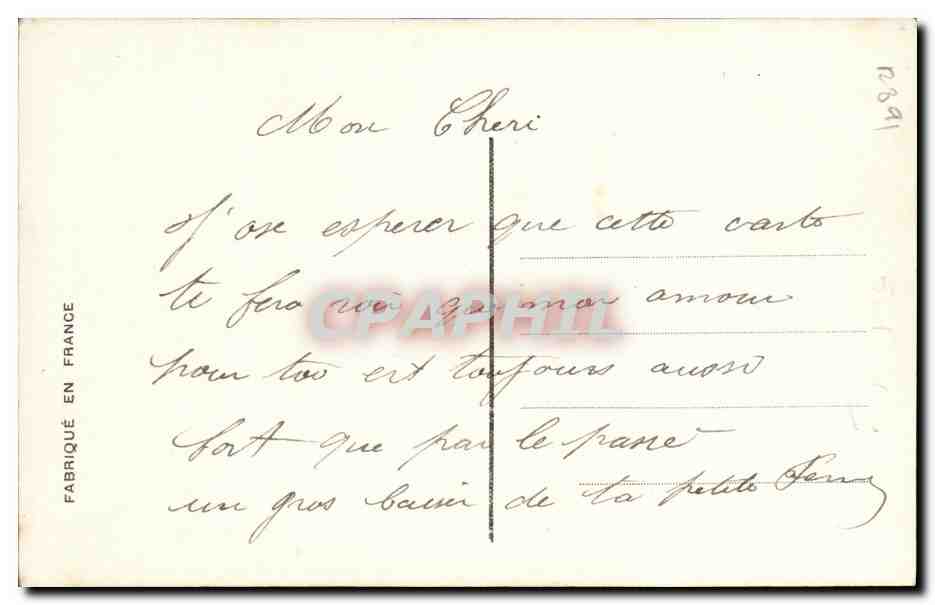 12391
Mon Cheri
J'ose esperer que cette carte
te fera voir que mon amour
pour toi est toujours aussi
fort que par le passé
un gros baiser de ta petite
FABRIQUÉ EN FRANCE
CPAPHIL